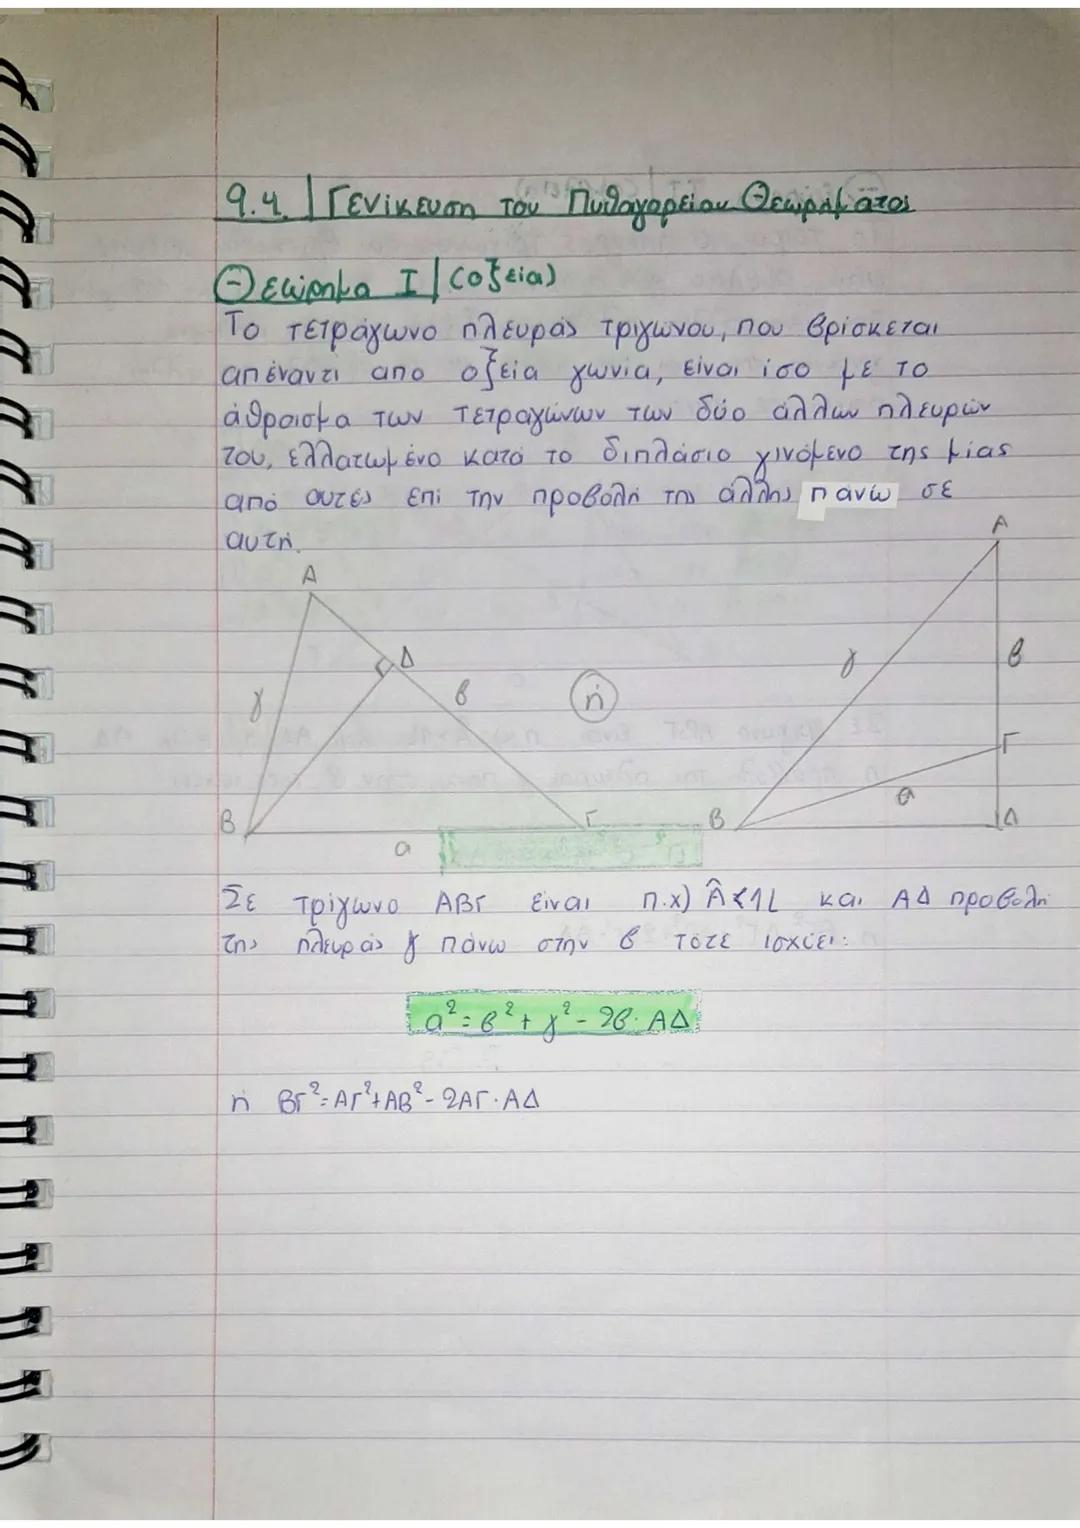 9.4. | Γενίκευση του Πυθαγορείου Θεωρήματος
Θεώρημα I | (οξεία)
Το τετράγωνο πλευράς τριγώνου, που βρίσκεται
απέναντι απο οξεία γωνία, είναι ίσο με το
άθροισμα των τετραγώνων των δύο άλλων πλευρών
του, ελλατωμένο κατά το διπλάσιο γινόμενο της μίας
από αυτές επί την προβολή της άλλης πάνω σε
αυτή.
A
A
Δ
γ
β
ή
γ
β
Γ
α
B
Γ
B
Δ
α
Σε τρίγωνο ΑΒΓ είναι π.χ) Â<1L και ΑΔ προβολή
της πλευράς γ πάνω στην β τότε ισχύει:
α²=β²+γ²-2β·ΑΔ
ή ΒΓ²=ΑΓ²+ΑΒ²-2ΑΓ·ΑΔ